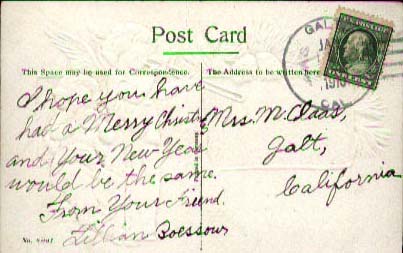 Post Card
This Space may be used for Correspondence.
The Address to be written here
GAL
JA
1910
CAL
I hope you have
had a Merry Christm
and Your New Year
would be the same.
From Your Friend.
Lillian
Mrs. M. Claas,
Galt,
California
No.